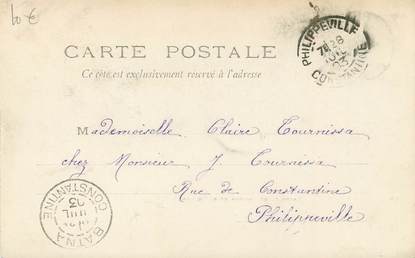 10 €
CARTE POSTALE
Ce côté est exclusivement réservé à l'adresse
PHILIPPEVILLE
CONSTANTINE
Mademoiselle Claire Tournissa
chez Monsieur J. Tournissa
Rue de Constantine
Philippeville
BATNA
CONSTANTINE
JUIL
03